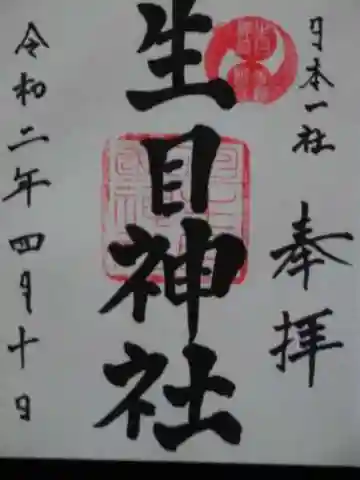 日本一社
奉拝
生目神社
令和二年四月十日